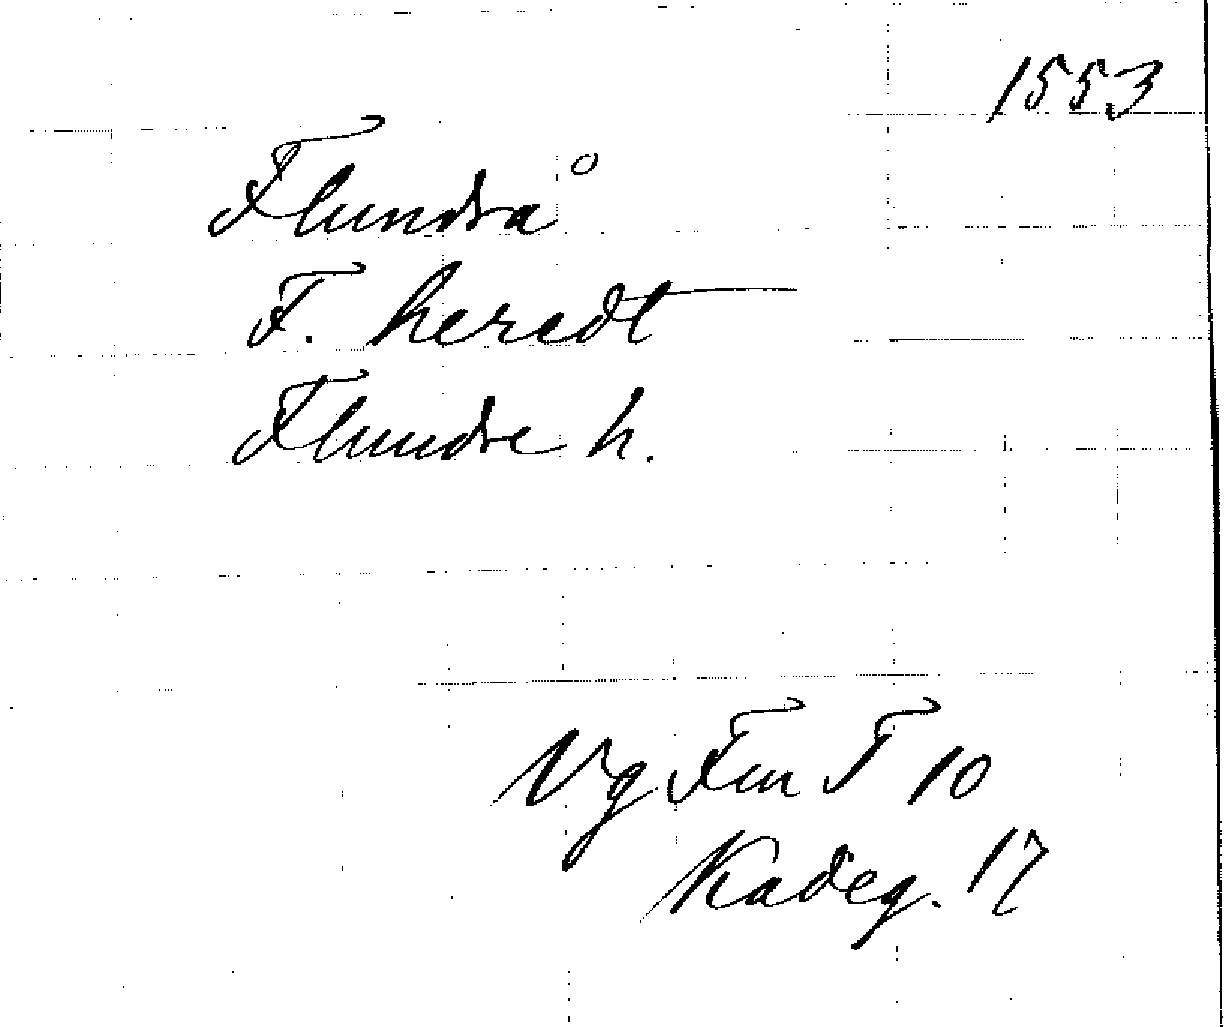 1553
Flundrå
F. heredt
Flundre h.
Vg Fin T 10
Kadeg. 17